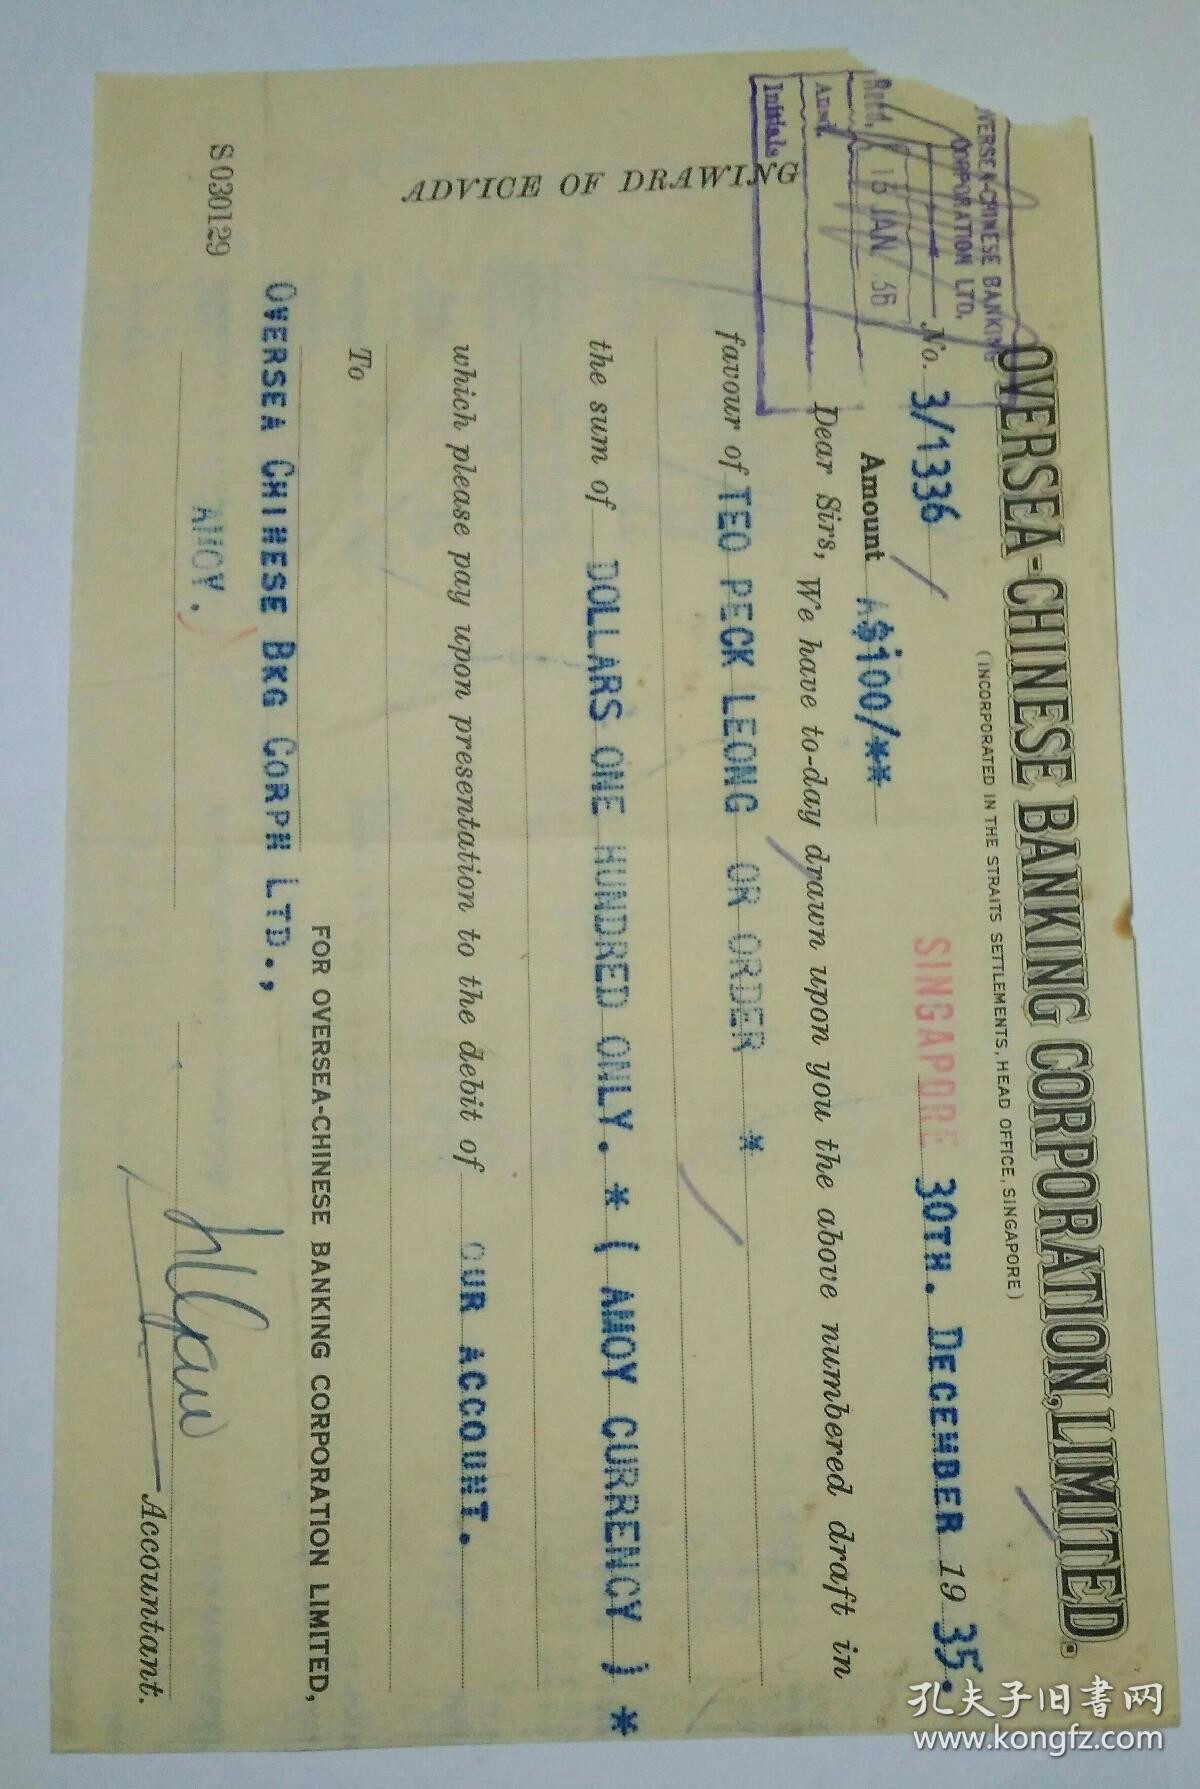 OVERSEA-CHINESE BANKING CORPORATION, LIMITED.
(INCORPORATED IN THE STRAITS SETTLEMENTS, HEAD OFFICE, SINGAPORE)
OVERSEA-CHINESE BANKING
CORPORATION LTD.
Recd. 15 JAN 36
Initials
No. 3/1336
SINGAPORE 30TH. DECEMBER 1935.
Amount A$100/**
Dear Sirs, We have to-day drawn upon you the above numbered draft in
favour of TEO PECK LEONG OR ORDER *
the sum of DOLLARS ONE HUNDRED ONLY. * ( AMOY CURRENCY ) *
which please pay upon presentation to the debit of OUR ACCOUNT.
To
FOR OVERSEA-CHINESE BANKING CORPORATION LIMITED,
OVERSEA CHINESE BKG CORPN LTD.,
AMOY.
Accountant.
ADVICE OF DRAWING
S 030129
孔夫子旧书网
www.kongfz.com